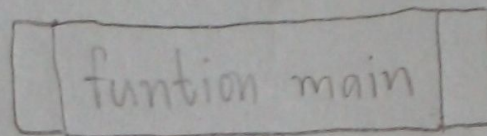 funtion main